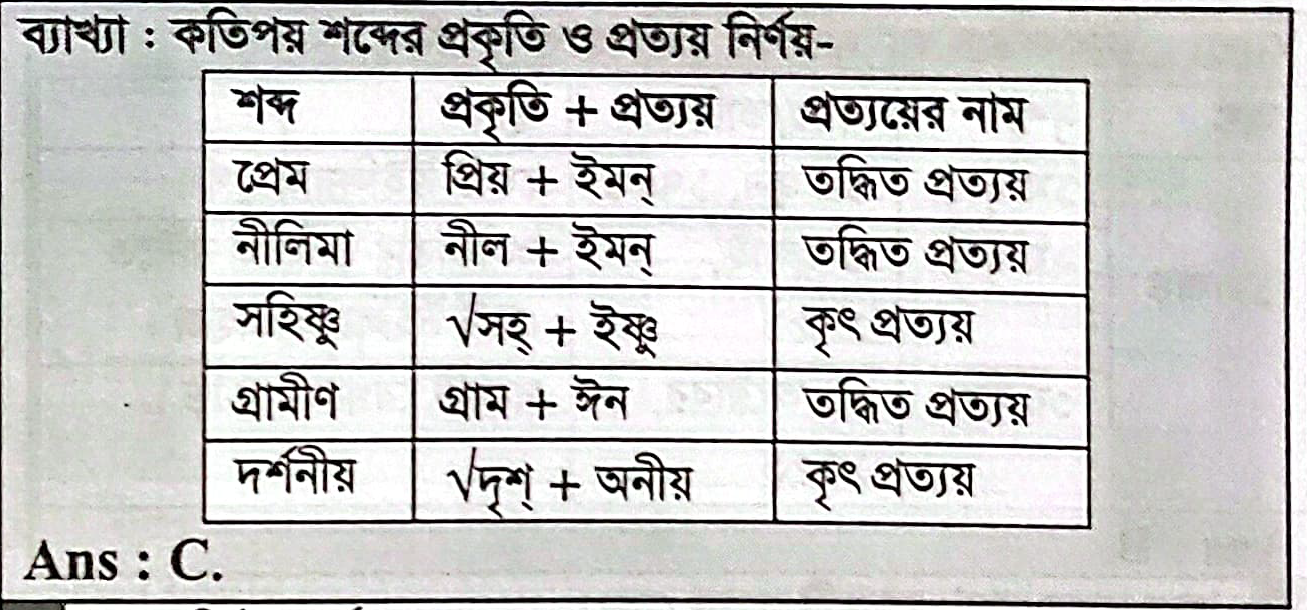 ব্যাখ্যা : কতিপয় শব্দের প্রকৃতি ও প্রত্যয় নির্ণয়-
শব্দ প্রকৃতি + প্রত্যয় প্রত্যয়ের নাম
প্রেম প্রিয় + ইমন্ তদ্ধিত প্রত্যয়
নীলিমা নীল + ইমন্ তদ্ধিত প্রত্যয়
সহিষ্ণু √সহ্ + ইষ্ণু কৃৎ প্রত্যয়
গ্রামীণ গ্রাম + ঈন তদ্ধিত প্রত্যয়
দর্শনীয় √দৃশ্ + অনীয় কৃৎ প্রত্যয়
Ans : C.